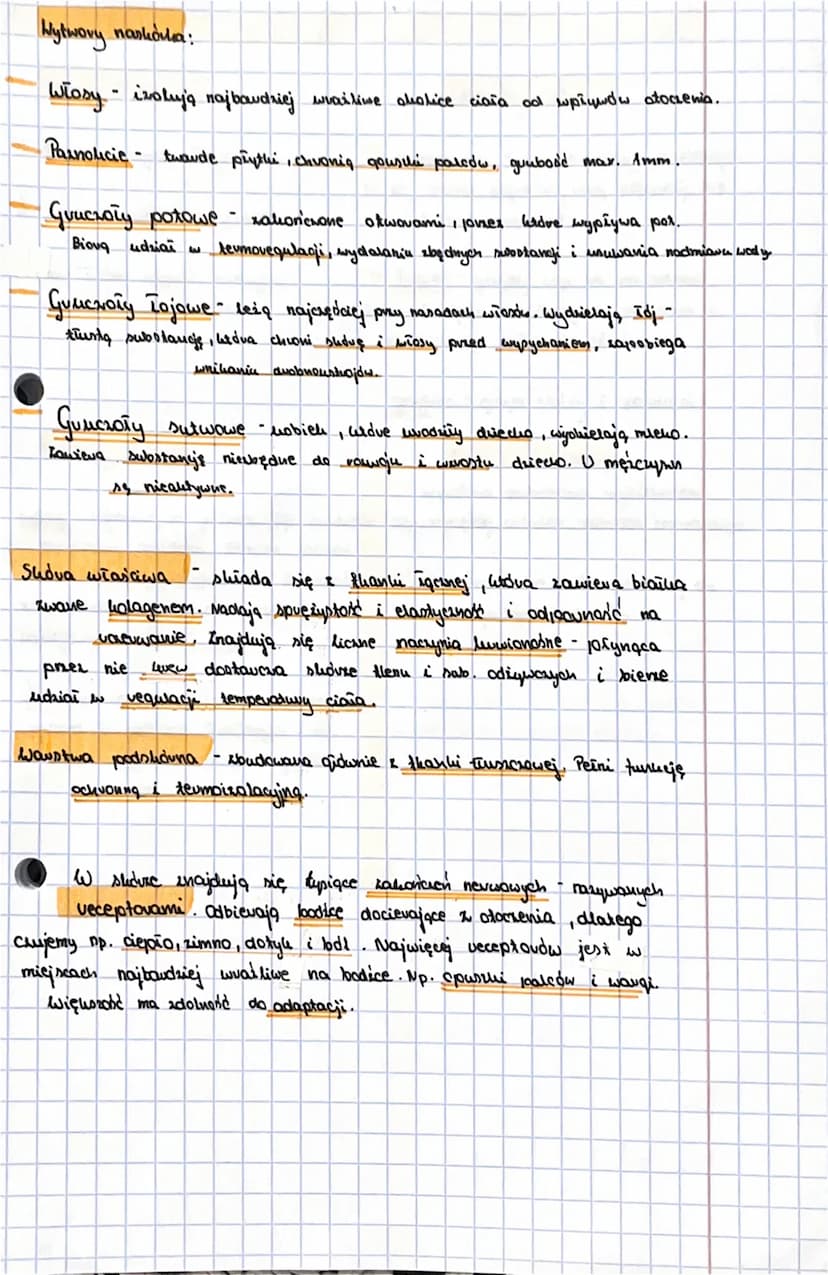 Wytwory naskórka:
Włosy - izolują najbardziej wrażliwe okolice ciała od wpływów otoczenia.
Paznokcie - twarde płytki, chronią opuszki palców, grubość max. 1mm.
Gruczoły potowe - zakończone otworami, przez które wypływa pot.
Biorą udział w termoregulacji, wydalaniu zbędnych substancji i usuwania nadmiaru wody
Gruczoły łojowe - leżą najczęściej przy nasadach włosów. Wydzielają łój -
tłustą substancję, która chroni skórę i włosy przed wysychaniem, zapobiega
wnikaniu drobnoustrojów.
Gruczoły sutkowe - u kobiet, które urodziły dziecko, wydzielają mleko.
Zawiera substancje niezbędne do rozwoju i wzrostu dziecka. U mężczyzn
są nieaktywne.
Skóra właściwa - składa się z tkanki łącznej, która zawiera białka
zwane kolagenem. Nadają sprężystość i elastyczność i odporność na
rozrywanie. Znajdują się liczne naczynia krwionośne - płynąca
przez nie krew dostarcza skórze tlenu i sub. odżywczych i bierze
udział w regulacji temperatury ciała.
Warstwa podskórna - zbudowana głównie z tkanki tłuszczowej. Pełni funkcję
ochronną i termoizolacyjną.
W skórze znajdują się tysiące zakończeń nerwowych - nazywanych
receptorami. Odbierają bodźce docierające z otoczenia, dlatego
czujemy np. ciepło, zimno, dotyk i ból. Najwięcej receptorów jest w
miejscach najbardziej wrażliwe na bodźce. Np. opuszki palców i wargi.
Większość ma zdolność do adaptacji.